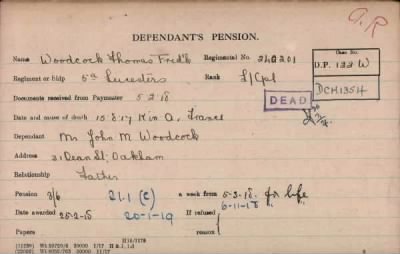 A.R
DEPENDANT'S PENSION.
Name Woodcock Thomas Fred'k Regimental No. 240201
Case No.
D.P. 122 W
Regiment or Ship 5th Leicesters Rank L/Cpl
DCM135H
Documents received from Paymaster 5-2-18
DEAD
Date and cause of death 15.8.17 K in A. France
Dependant Mr John M Woodcock
Address 31 Dean St; Oakham
Relationship Father
Pension 3/6 21.1 (c) a week from 5-3-18 for life
6-11-18 "
Date awarded 25-2-18 20-1-19 If refused
Papers reason
H16/1179